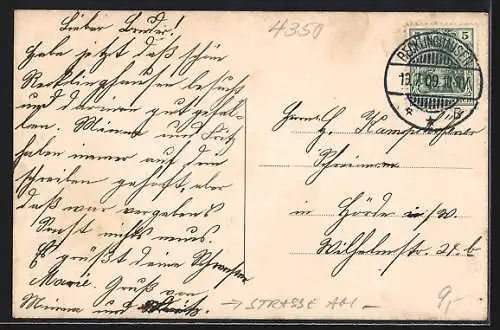 Lieber Bruder!
Habe jetzt das schön
Recklinghausen besucht
und daran gut gefal-
len. Minna und Fritz
haben immer auf dein
schreiben gehofft, aber
das war vergebens
Sonst nichts neues.
Es grüßt deine Schwester
Marie. Gruß von
Minna und Fritz
4350
5
RECKLINGHAUSEN
09
Herrn H.
Schreiner
in Hörde i/W.
Wilhelmstr. 21.b
→ STRASSE AB1 –
9,-